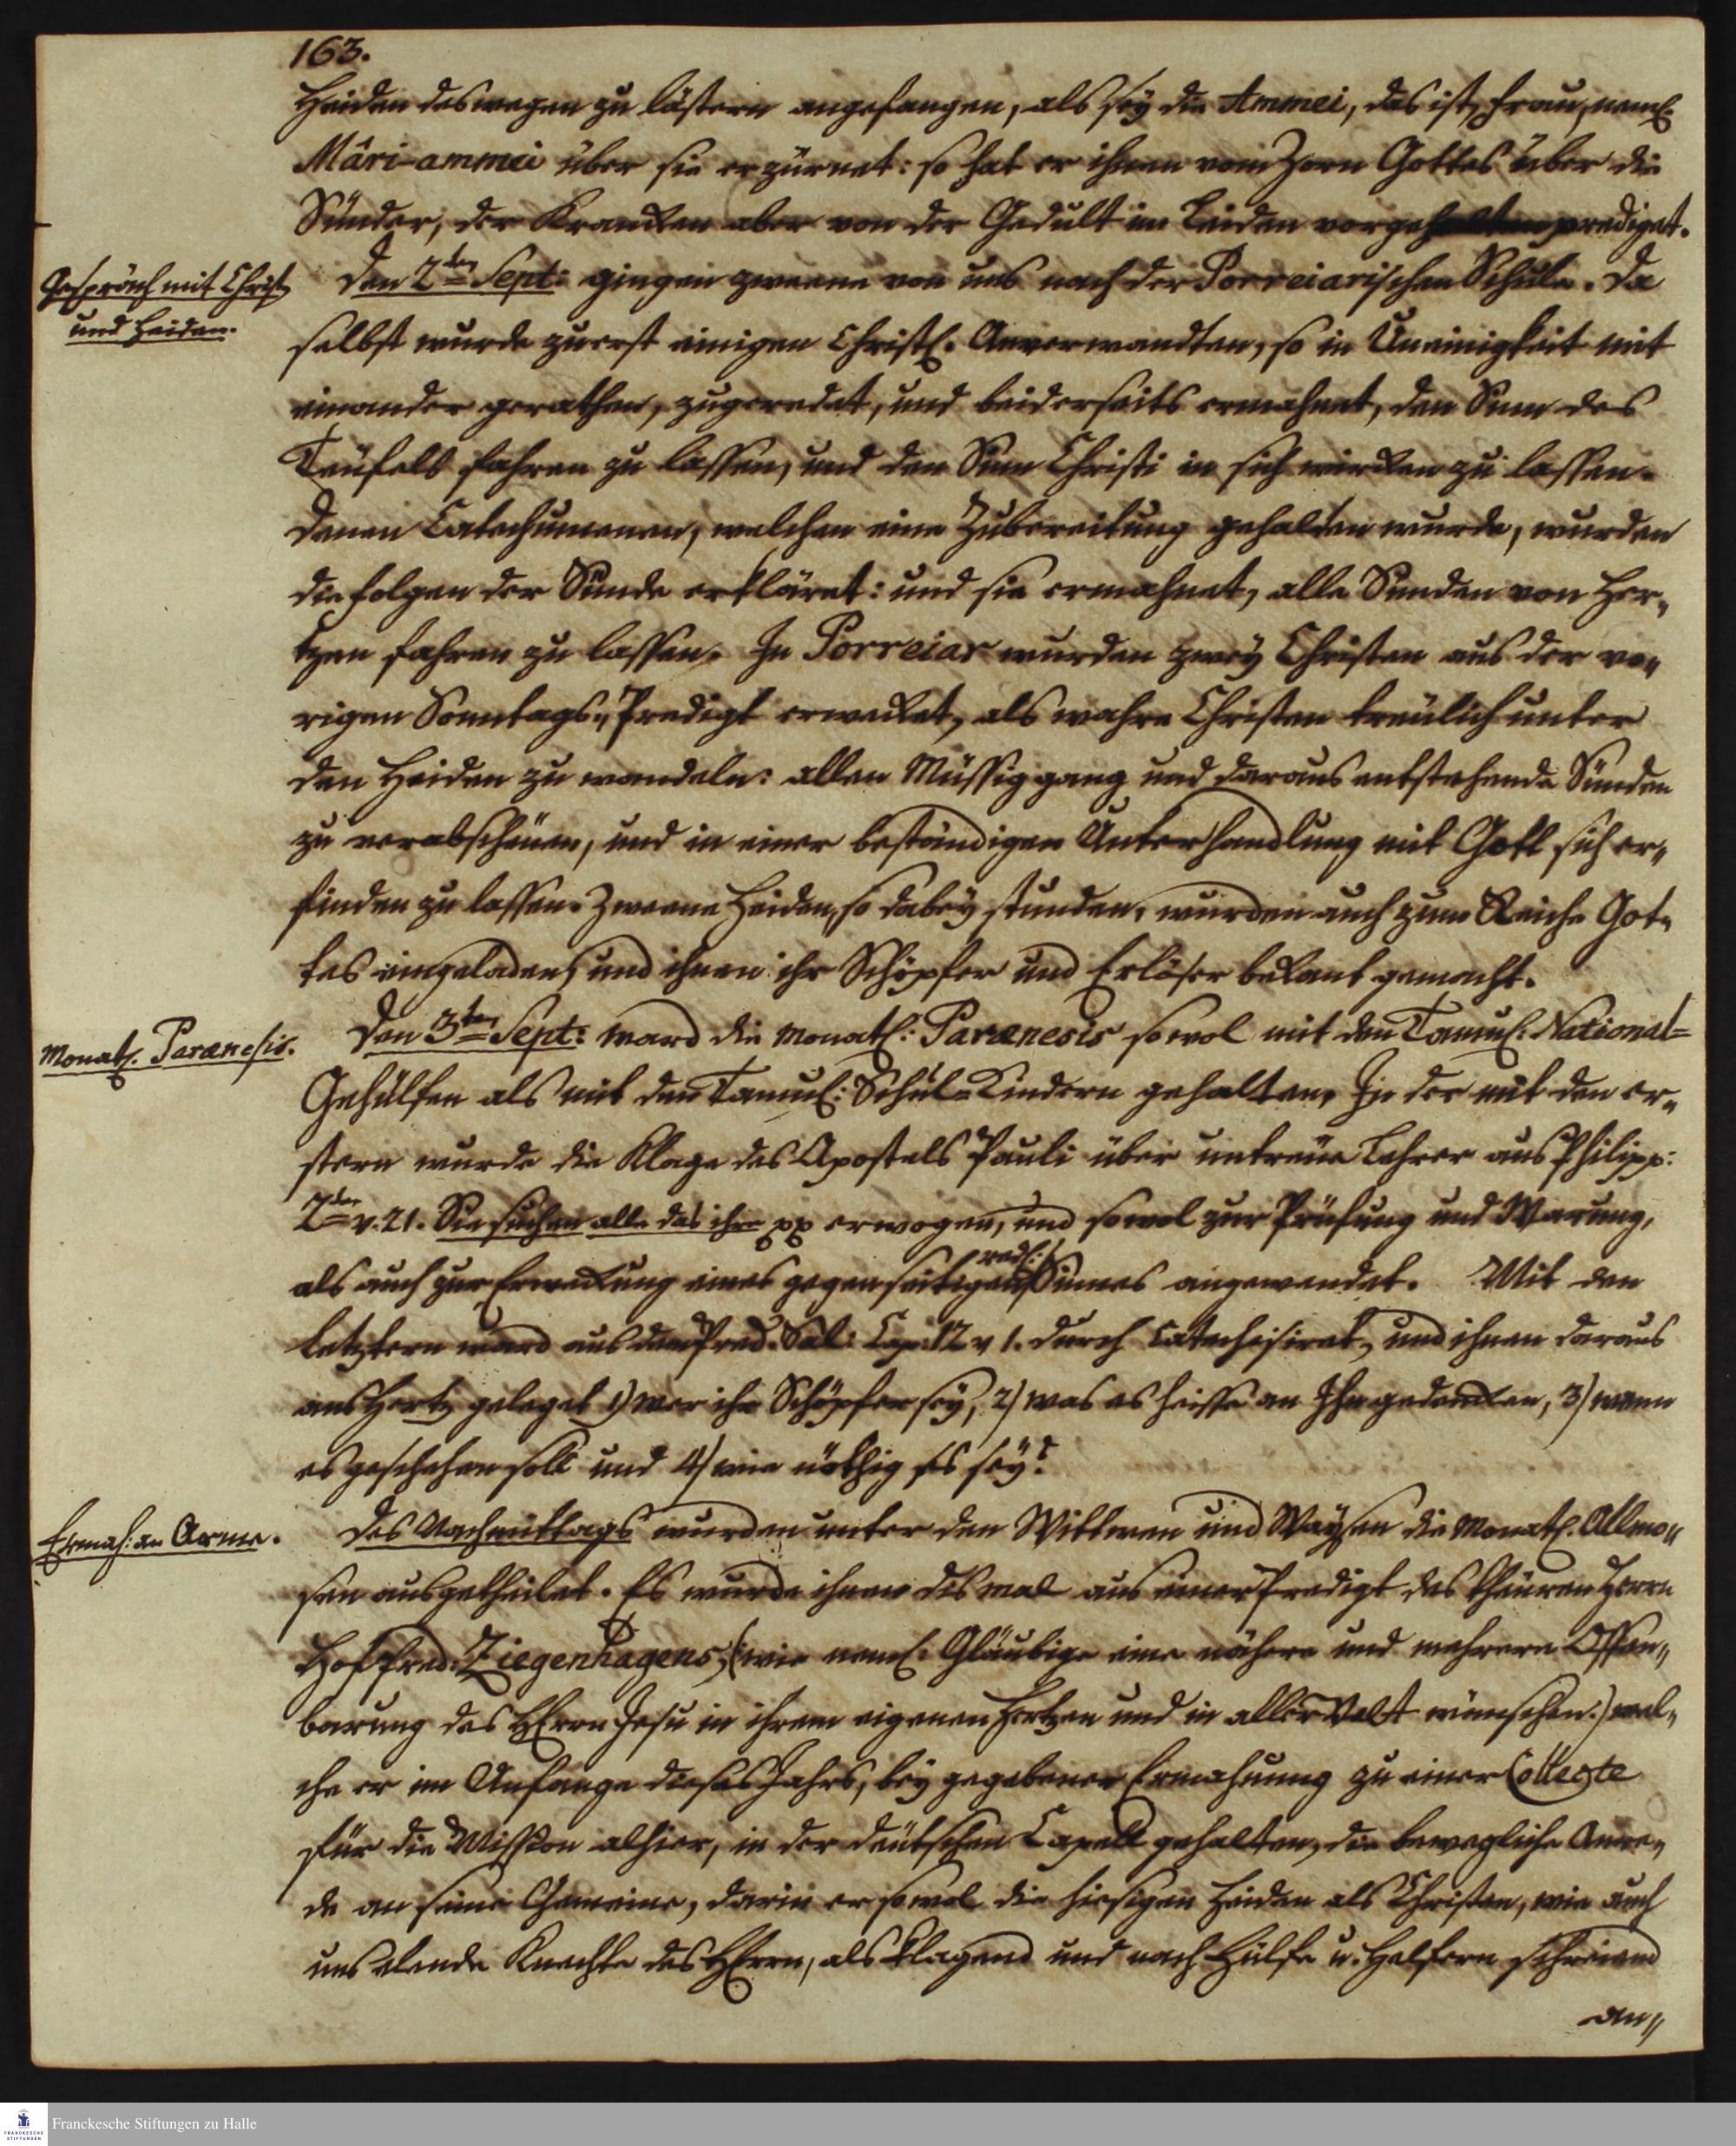 163.
Heiden deswegen zu lästern angefangen, als sey die Ammei, das ist, Frau, neml:
Mâri-ammei über sie erzürnet: so hat er ihnen vom Zorn Gottes über die
Sünder, der Krancken aber von der Gedult im Leiden vorgehalten prediget.
Gespräch mit Christ
und Heiden.
Den 2ten Sept: gingen zweene von uns nach der Porreiarischen Schule. Da
selbst wurde zuerst einigen Christl. Anverwandten, so in Uneinigkeit mit
einander gerathen, zugeredet, und beiderseits ermahnet, den Sinn des
Teüfels fahren zu lassen, und den Sinn Christi in sich wircken zu lassen.
Denen Catechumenen, welchen eine Zubereitung gehalten wurde, wurden
die Folgen der Sünde erkläret: und sie ermahnet, alle Sünden von Her„
tzen fahren zu lassen. In Porreiar wurden zwey Christen aus der vo„
rigen Sonntags„Predigt erwecket, als wahre Christen treülich unter
den Heiden zu wandeln: allen Müssiggang und daraus entstehende Sünden
zu verabscheüen, und in einer beständigen Unterhandlung mit Gott sich er„
finden zu lassen. Zweene Heiden, so dabey stunden, wurden auch zum Reiche Got„
tes eingeladen, und ihnen ihr Schöpfer und Erlöser bekant gemacht.
Monatl. Parænesis.
Den 3ten Sept: ward die Monatl: Parænesis sowol mit den Tamul: National=
Gehülfen als mit den Tamul: Schul=Kindern gehalten. In der mit den er„
stern wurde die Klage des Apostels Pauli über untreüe Lehrer aus Philipp:
2ten v. 21. Sie suchen alle das ihre pp erwogen, und sowol zur Prüfung und Warung,
als auch zur Erweckung eines gegenseitigen redl: Sinnes angewendet. Mit den
letztern ward aus dem Pred: Sal: Cap: 12 v 1. durch catechisiret, und ihnen daraus
ans Hertz geleget 1) wer ihr Schöpfer sey, 2) was es heisse an Ihn gedencken, 3) wenn
es geschehen soll und 4) wie nöthig es sey?
Ermah: an Arme.
Des Nachmittags wurden unter den Wittwen und Waysen die Monatl. Allmo„
sen ausgetheilet. Es wurde ihnen dismal aus einer Predigt des theüren Herrn
Hof Pred: Ziegenhagens, (wie neml: Gläubige eine nähere und mehrere Offen„
barung des HErrn Jesu in ihrem eigenen Hertzen und in aller Welt wünschen:) wel„
che er im Anfange dieses Jahrs, bey gegebener Ermahnung zu einer Collecte
für die Mission alhier, in der deütschen Capell gehalten, die bewegliche Anre„
de an seine Gemeine, darin er sowol die hiesigen Heiden als Christen, wie auch
uns elende Knechte des HErrn, als klagend und nach Hülfe u. Helfern schreiend
an„
Franckesche Stiftungen zu Halle
FRANCKESCHE
STIFTUNGEN